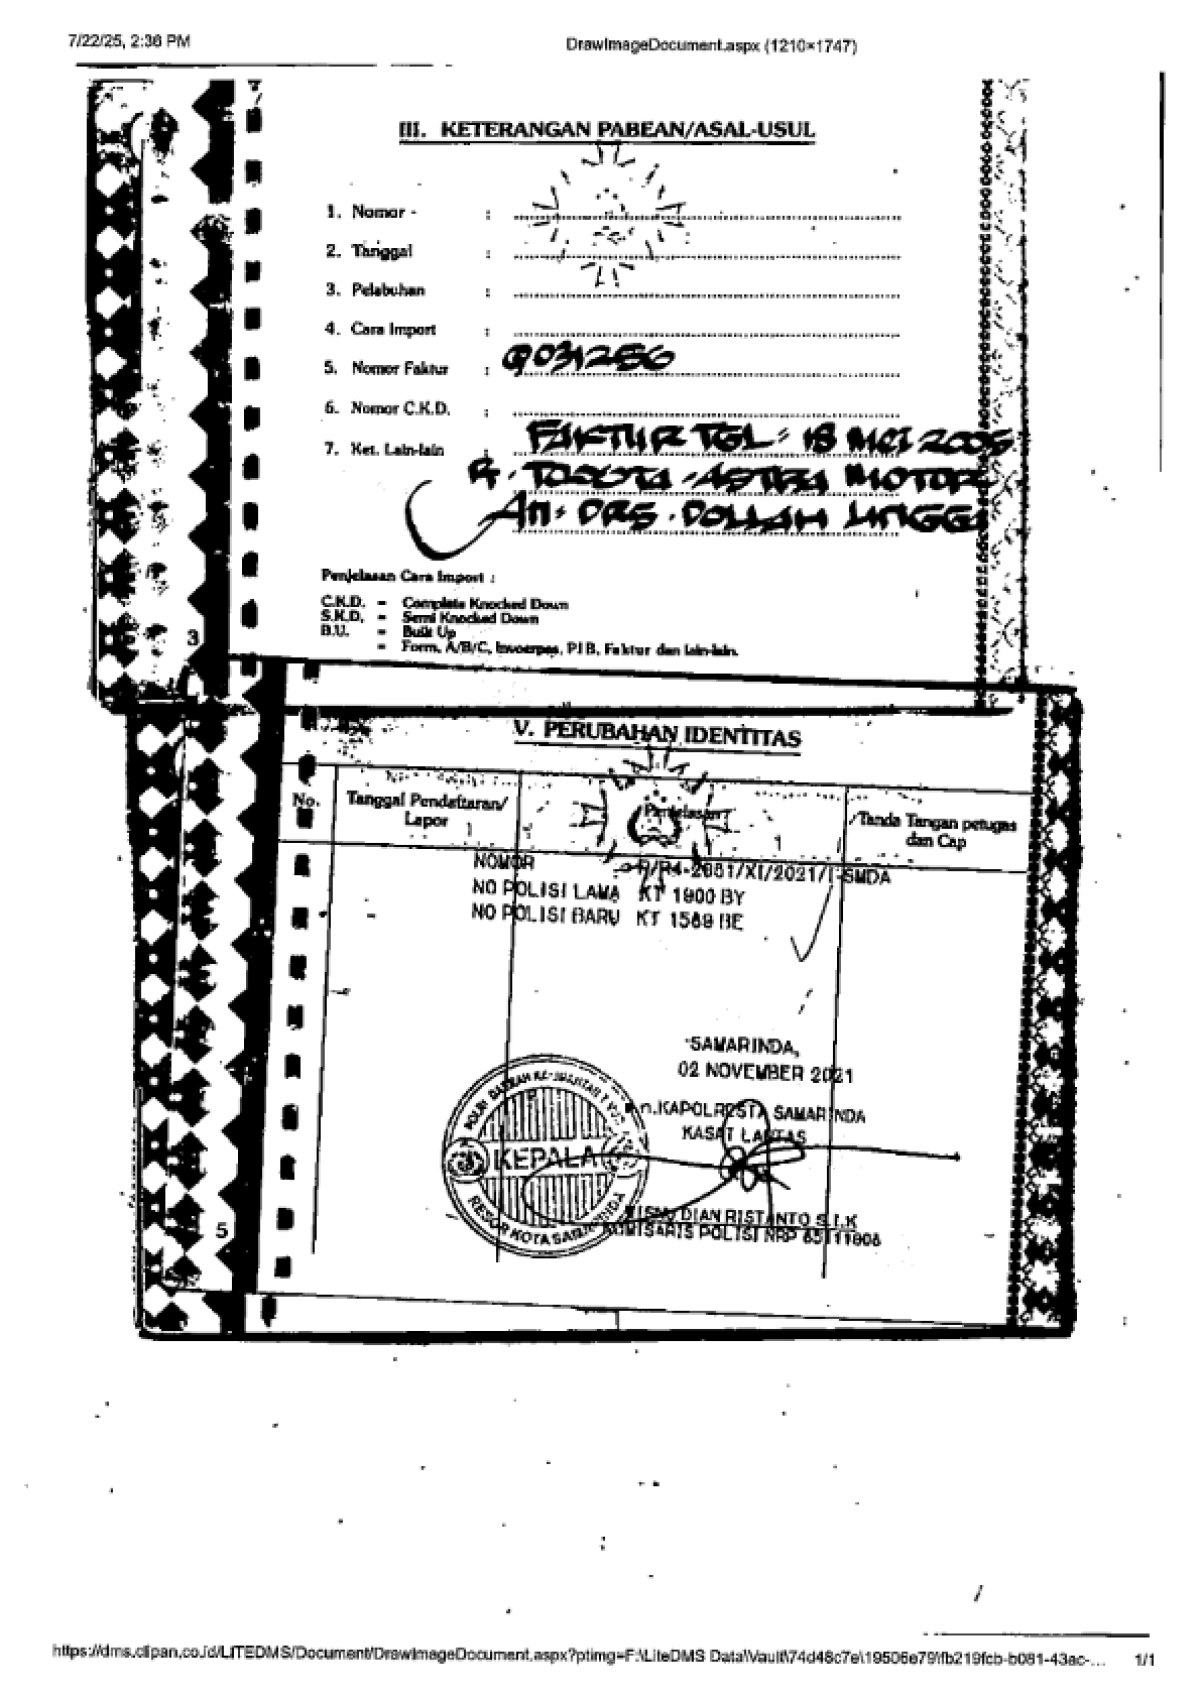 7/22/25, 2:36 PM
DrawImageDocument.aspx (1210×1747)
III. KETERANGAN PABEAN/ASAL-USUL
1. Nomor - :
2. Tanggal :
3. Pelabuhan :
4. Cara Import :
5. Nomor Faktur :
6. Nomor C.K.D. :
7. Ket. Lain-lain : FAKTUR TGL : 18 MEI 2006
TOYOTA - ASTRA MOTOR
AN. DRS. DOLLAH
Penjelasan Cara Import :
C.K.D. = Complete Knocked Down
S.K.D. = Semi Knocked Down
B.U. = Built Up
= Form. A/B/C, PIB, Faktur dan lain-lain.
3
V. PERUBAHAN IDENTITAS
No.
Tanggal Pendaftaran/
Lapor
Penjelasan
Tanda Tangan petugas
dan Cap
NOMOR
NO POLISI LAMA KT 1900 BY
NO POLISI BARU KT 1589 BE
SAMARINDA,
02 NOVEMBER 2021
KAPOLRESTA SAMARINDA
KASAT LANTAS
KEPALA
RESOR KOTA SAMARINDA
DIAN RISTANTO S.I.K
POLISI NRP
5
https://dms.clipan.co.id/LITEDMS/Document/DrawImageDocument.aspx?ptimg=F:\LiteDMS Data\Vault\74d48c7e\19506e79\fb219fcb-b081-43ac-... 1/1